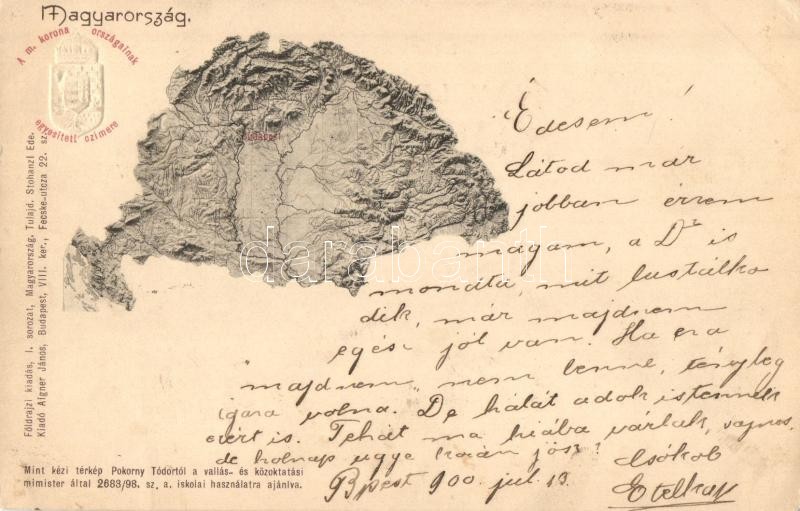 Magyarország.
A m. korona országainak
egyesitett czimere
Budapest
Földrajzi kiadás, I. sorozat, Magyarország. Tulajd. Stohanzl Ede.
Kiadó Aigner János, Budapest, VIII. ker., Fecske-utcza 22. sz.
Édesem!
Látod már
jobban érzem
magam, a Dr is
mondta, mit lustálko
dik, már majdnem
egész jól van. Ha ez a
"majdnem" nem lenne, tényleg
igaza volna. De hálát adok istennek
ezért is. Tehát ma hiába várlak, sajnos,
de holnap ugye korán jösz? Csókol
Bpest 900. jul. 13. Etelkay
Mint kézi térkép Pokorny Tódortól a vallás- és közoktatási
mimister által 2683/98. sz. a. iskolai használatra ajánlva.
darabanth